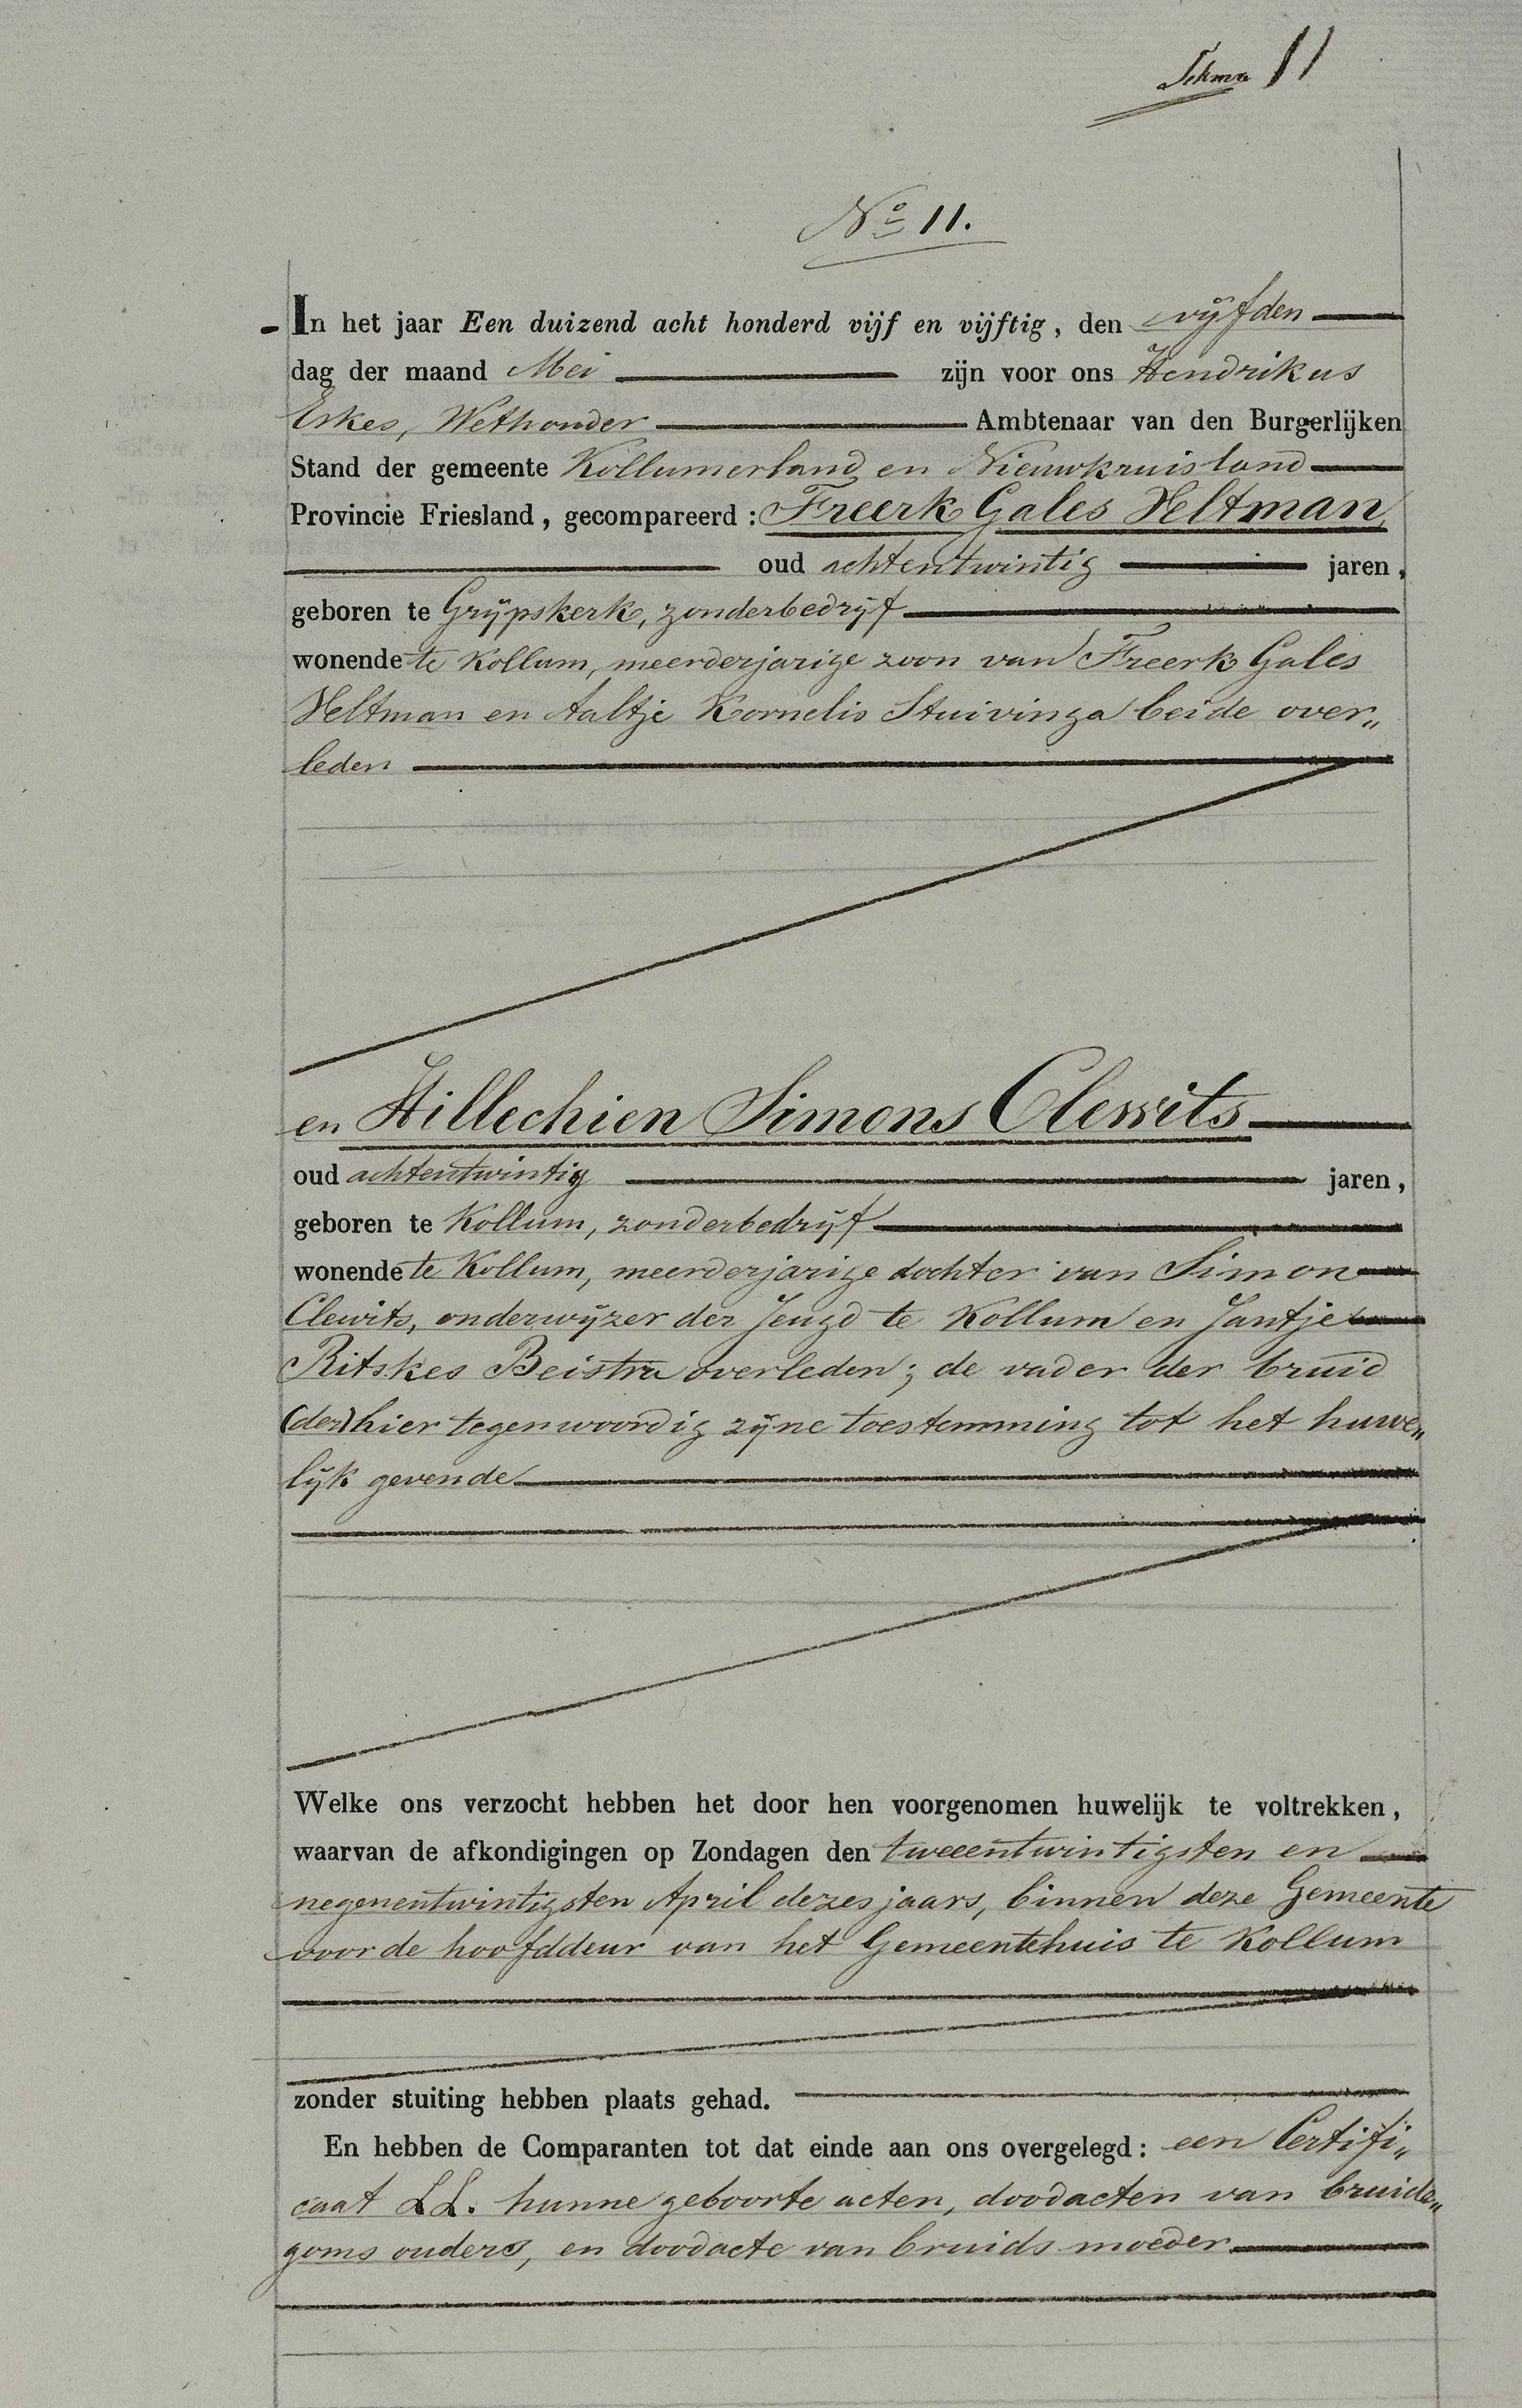 11
Nº 11.
In het jaar Een duizend acht honderd vijf en vijftig, den vijfden
dag der maand Mei zijn voor ons Hendrikus
Eskes, Wethouder Ambtenaar van den Burgerlijken
Stand der gemeente Kollumerland en Nieuwkruisland
Provincie Friesland, gecompareerd: Freerk Gales Veltman,
oud achtentwintig jaren,
geboren te Grijpskerk, zonderbedrijf
wonende te Kollum, meerderjarige zoon van Freerk Gales
Veltman en Aaltje Kornelis Stuivinga beide over„
leden
en Hillechien Simons Clewits
oud achtentwintig jaren,
geboren te Kollum, zonderbedrijf
wonende te Kollum, meerderjarige dochter van Simon
Clewits, onderwijzer der Jeugd te Kollum en Jantje
Ritskes Beistra overleden; de vader der bruid
(der) hier tegenwoordig zijne toestemming tot het huwe„
lijk gevende
Welke ons verzocht hebben het door hen voorgenomen huwelijk te voltrekken,
waarvan de afkondigingen op Zondagen den tweeentwintigsten en
negenentwintigsten April dezes jaars, binnen deze Gemeente
voor de hoofddeur van het Gemeentehuis te Kollum
zonder stuiting hebben plaats gehad.
En hebben de Comparanten tot dat einde aan ons overgelegd: een Certifi„
caat LL. hunne geboorte acten, doodacten van bruide„
goms ouders, en doodacte van bruids moeder